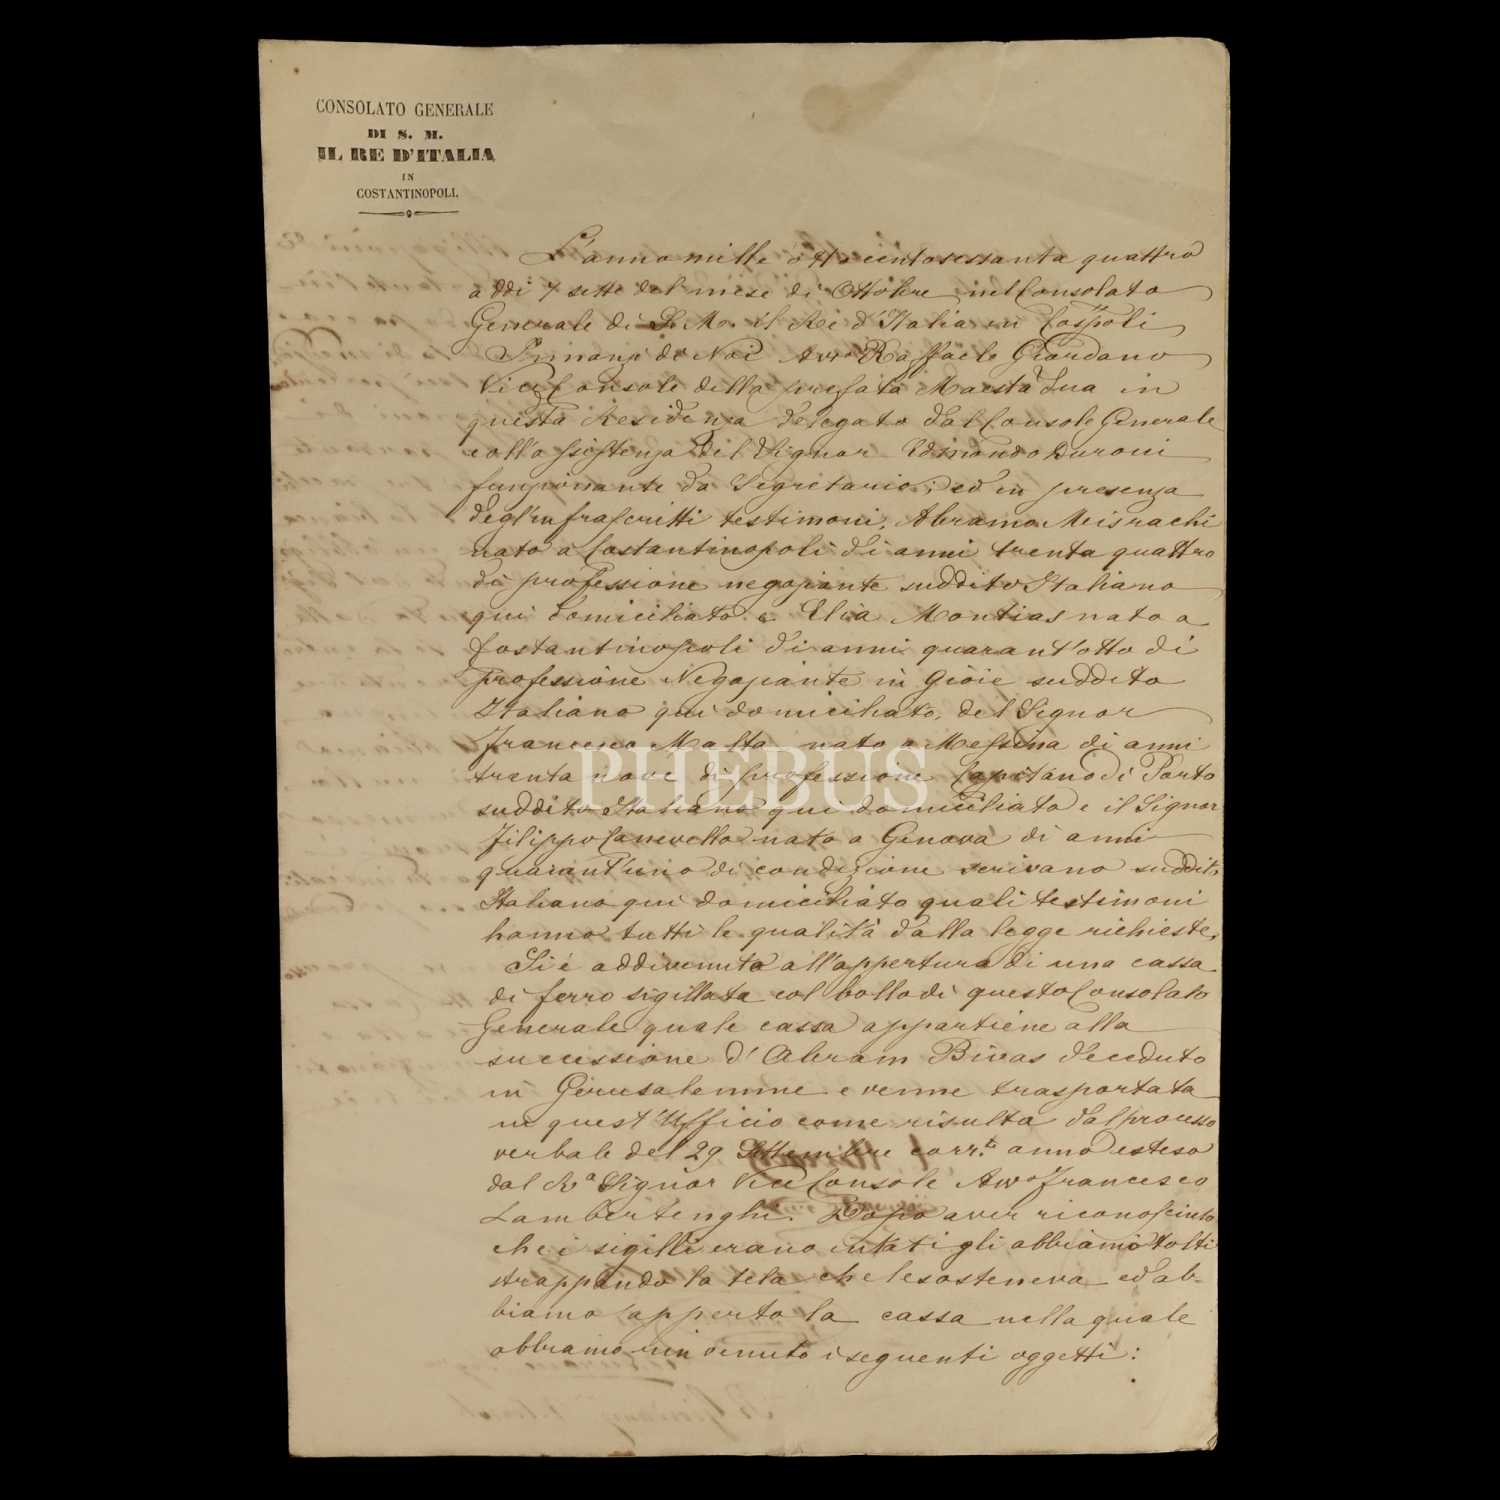 CONSOLATO GENERALE
DI S. M.
IL RE D'ITALIA
IN
COSTANTINOPOLI.
L'anno mille ottocentosessanta quattro
addì 7 sette del mese di Ottobre nel Consolato
Generale di S. M. il Re d'Italia in Cospoli
Innanzi di Noi Avvo Raffaele Giordano
Vice Console della prefata Maestà Sua in
questa Residenza delegato dal Console Generale
coll'assistenza del Signor Edmondo Duroni
funzionante da Segretario; ed in presenza
degl'infrascritti testimoni, Abramo Misrachi
nato a Costantinopoli di anni trenta quattro
di professione negoziante suddito Italiano
qui domiciliato e Elia Montias nato a
Costantinopoli di anni quarant'otto di
professione Negoziante in gioie suddito
Italiano qui domiciliato, del Signor
Francesco Malta nato a Messina di anni
trenta nove di professione Capitano di Porto
suddito Italiano qui domiciliato e il Signor
Filippo Canevello nato a Genova di anni
quarant'uno di condizione scrivano suddito
Italiano qui domiciliato quali testimoni
hanno tutti le qualità dalla legge richieste,
Si è addivenuto all'appertura di una cassa
di ferro sigillata col bollo di questo Consolato
Generale quale cassa appartiene alla
successione d'Abram Bivas deceduto
in Gerusalemme e venne trasportata
in quest'Ufficio come risulta dal processo
verbale del 29 Settembre corr.te anno esteso
dal Ro Signor Vice Console Avvo Francesco
Lambertenghi. Dopo aver riconosciuto
che i sigilli erano intati gli abbiamo tolti
strappando la tela che le sosteneva ed ab-
biamo apperto la cassa nella quale
abbiamo rinvenuto i seguenti oggetti:
PHEBUS